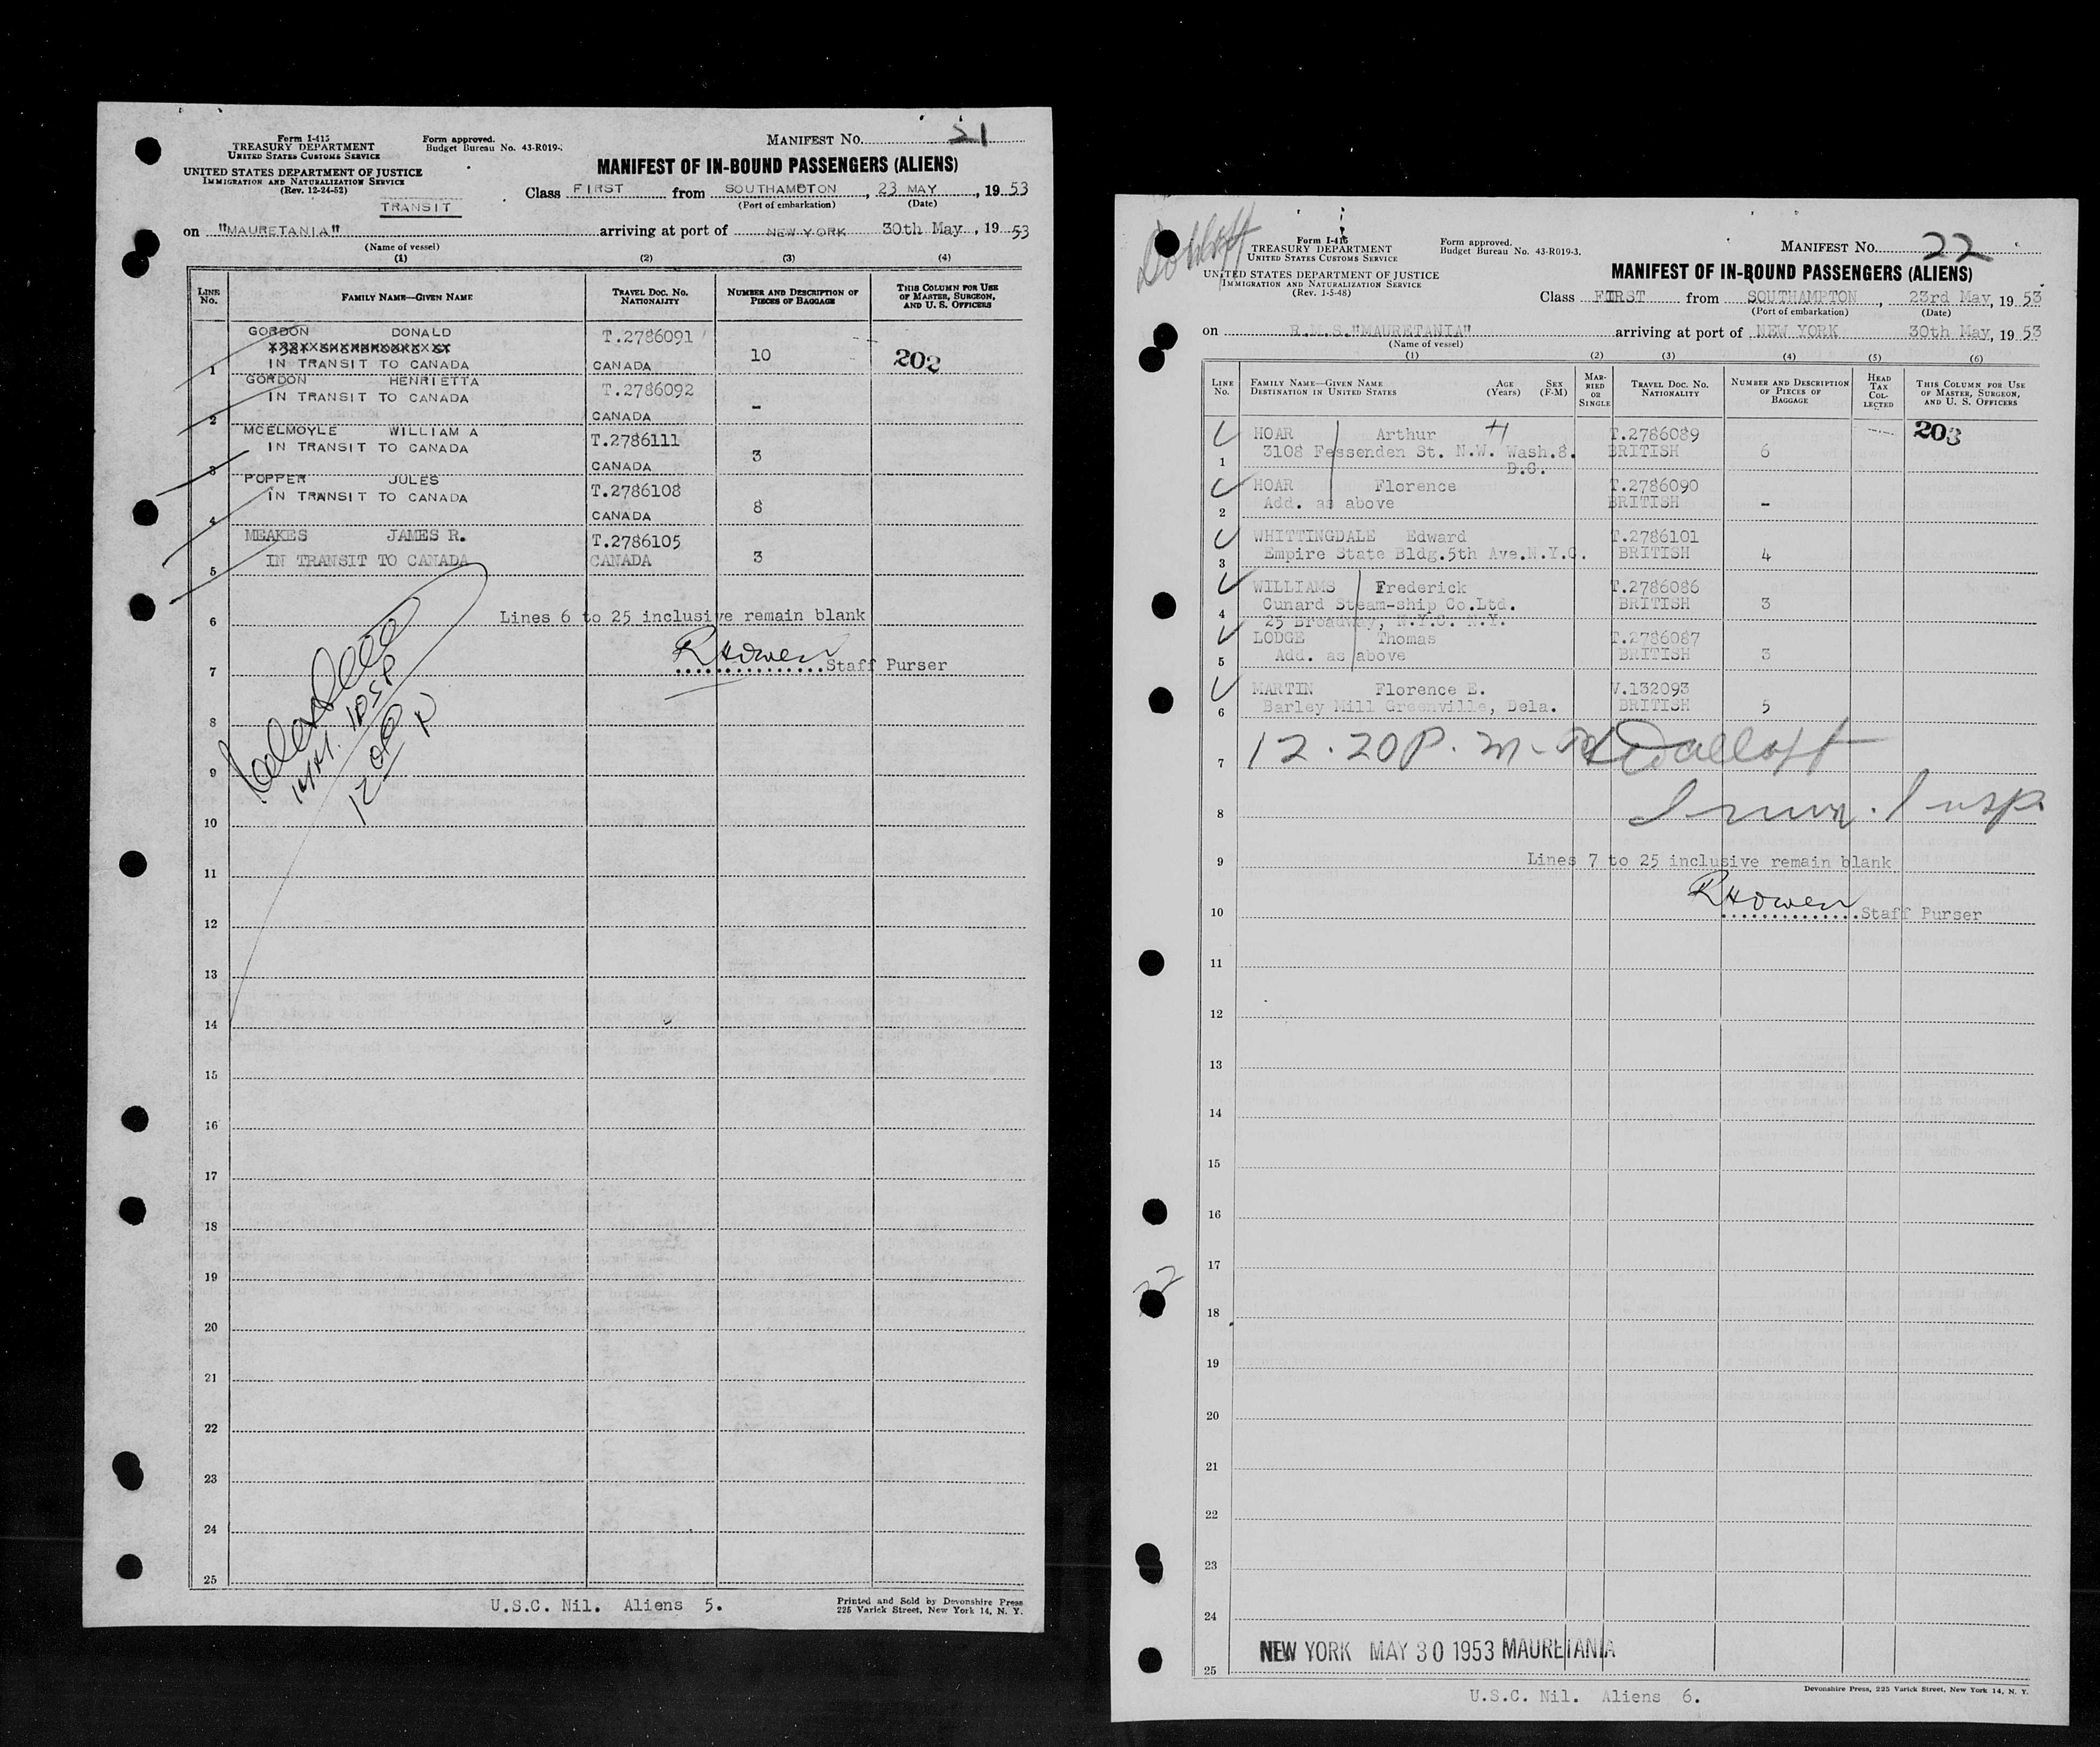 Form I-415
TREASURY DEPARTMENT
UNITED STATES CUSTOMS SERVICE
UNITED STATES DEPARTMENT OF JUSTICE
IMMIGRATION AND NATURALIZATION SERVICE
(Rev. 12-24-52)
TRANSIT
Form approved.
Budget Bureau No. 43-R019-
MANIFEST No. 21
MANIFEST OF IN-BOUND PASSENGERS (ALIENS)
Class FIRST from SOUTHAMPTON, 23 MAY, 19 53
(Port of embarkation) (Date)
on "MAURETANIA" arriving at port of NEW YORK 30th May, 19 53
(Name of vessel)
(1) (2) (3) (4)
LINE No. FAMILY NAME—GIVEN NAME TRAVEL DOC. NO. NATIONALITY NUMBER AND DESCRIPTION OF PIECES OF BAGGAGE THIS COLUMN FOR USE OF MASTER, SURGEON, AND U. S. OFFICERS
GORDON DONALD T.2786091
1 IN TRANSIT TO CANADA CANADA 10 202
GORDON HENRIETTA T.2786092
2 IN TRANSIT TO CANADA CANADA -
MCELMOYLE WILLIAM A T.2786111
3 IN TRANSIT TO CANADA CANADA 3
POPPER JULES T.2786108
4 IN TRANSIT TO CANADA CANADA 8
MEAKES JAMES R. T.2786105
5 IN TRANSIT TO CANADA CANADA 3
6 Lines 6 to 25 inclusive remain blank
7 RHOwen Staff Purser
8
9
10
11
12
13
14
15
16
17
18
19
20
21
22
23
24
25
U.S.C. Nil. Aliens 5.
Printed and Sold by Devonshire Press
225 Varick Street, New York 14, N. Y.
Form I-415
TREASURY DEPARTMENT
UNITED STATES CUSTOMS SERVICE
UNITED STATES DEPARTMENT OF JUSTICE
IMMIGRATION AND NATURALIZATION SERVICE
(Rev. 1-5-48)
Form approved.
Budget Bureau No. 43-R019-3.
MANIFEST No. 22
MANIFEST OF IN-BOUND PASSENGERS (ALIENS)
Class FIRST from SOUTHAMPTON, 23rd May, 19 53
(Port of embarkation) (Date)
on R.M.S."MAURETANIA" arriving at port of NEW YORK 30th May, 19 53
(Name of vessel)
(1) (2) (3) (4) (5) (6)
LINE No. FAMILY NAME—GIVEN NAME DESTINATION IN UNITED STATES AGE (Years) SEX (F-M) MARRIED OR SINGLE TRAVEL DOC. NO. NATIONALITY NUMBER AND DESCRIPTION OF PIECES OF BAGGAGE HEAD TAX COLLECTED THIS COLUMN FOR USE OF MASTER, SURGEON, AND U. S. OFFICERS
HOAR Arthur H T.2786089 203
1 3108 Fessenden St. N.W. Wash.8. D.C. BRITISH 6
HOAR Florence T.2786090
2 Add. as above BRITISH -
WHITTINGDALE Edward T.2786101
3 Empire State Bldg.5th Ave.N.Y.C. BRITISH 4
WILLIAMS Frederick T.2786086
4 Cunard Steam-ship Co.Ltd. BRITISH 3
25 Broadway, N.Y.C. N.Y.
LODGE Thomas T.2786087
5 Add. as above BRITISH 3
MARTIN Florence E. V.132093
6 Barley Mill Greenville, Dela. BRITISH 5
7 12.20 P.M.
8 Imm. Insp.
9 Lines 7 to 25 inclusive remain blank
10 RHOwen Staff Purser
11
12
13
14
15
16
17
22
18
19
20
21
22
23
24
NEW YORK MAY 30 1953 MAURETANIA
25
U.S.C. Nil. Aliens 6.
Devonshire Press, 225 Varick Street, New York 14, N. Y.